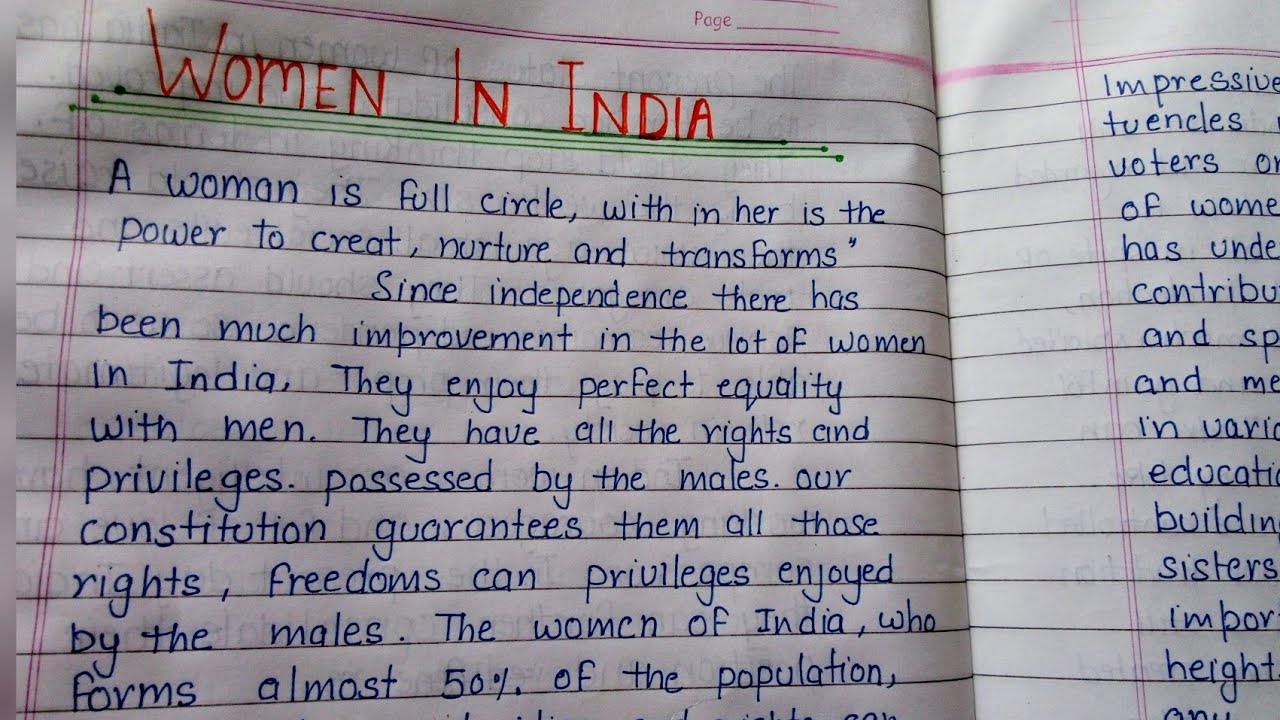 Page
WOMEN IN INDIA
A woman is full circle, with in her is the
power to creat, nurture and transforms"
Since independence there has
been much improvement in the lot of women
in India, They enjoy perfect equality
with men. They have all the rights and
privileges. possessed by the males. our
constitution guarantees them all those
rights, freedoms can privileges enjoyed
by the males. The women of India, who
forms almost 50% of the population,
Impressive
tuencles
voters
of wome
has unde
contribu
and sp
and me
in vario
educatio
building
sisters
impor
height
any